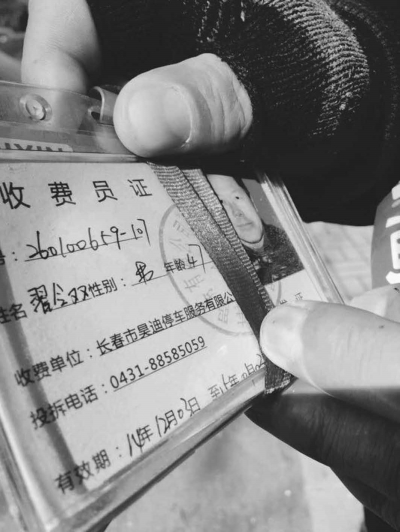 收费员证
号：260100659-107
性别：男 年龄 47
收费单位：长春市昊迪停车服务有限公
投拆电话：0431-88585059
有效期：14年12月03日 至15年